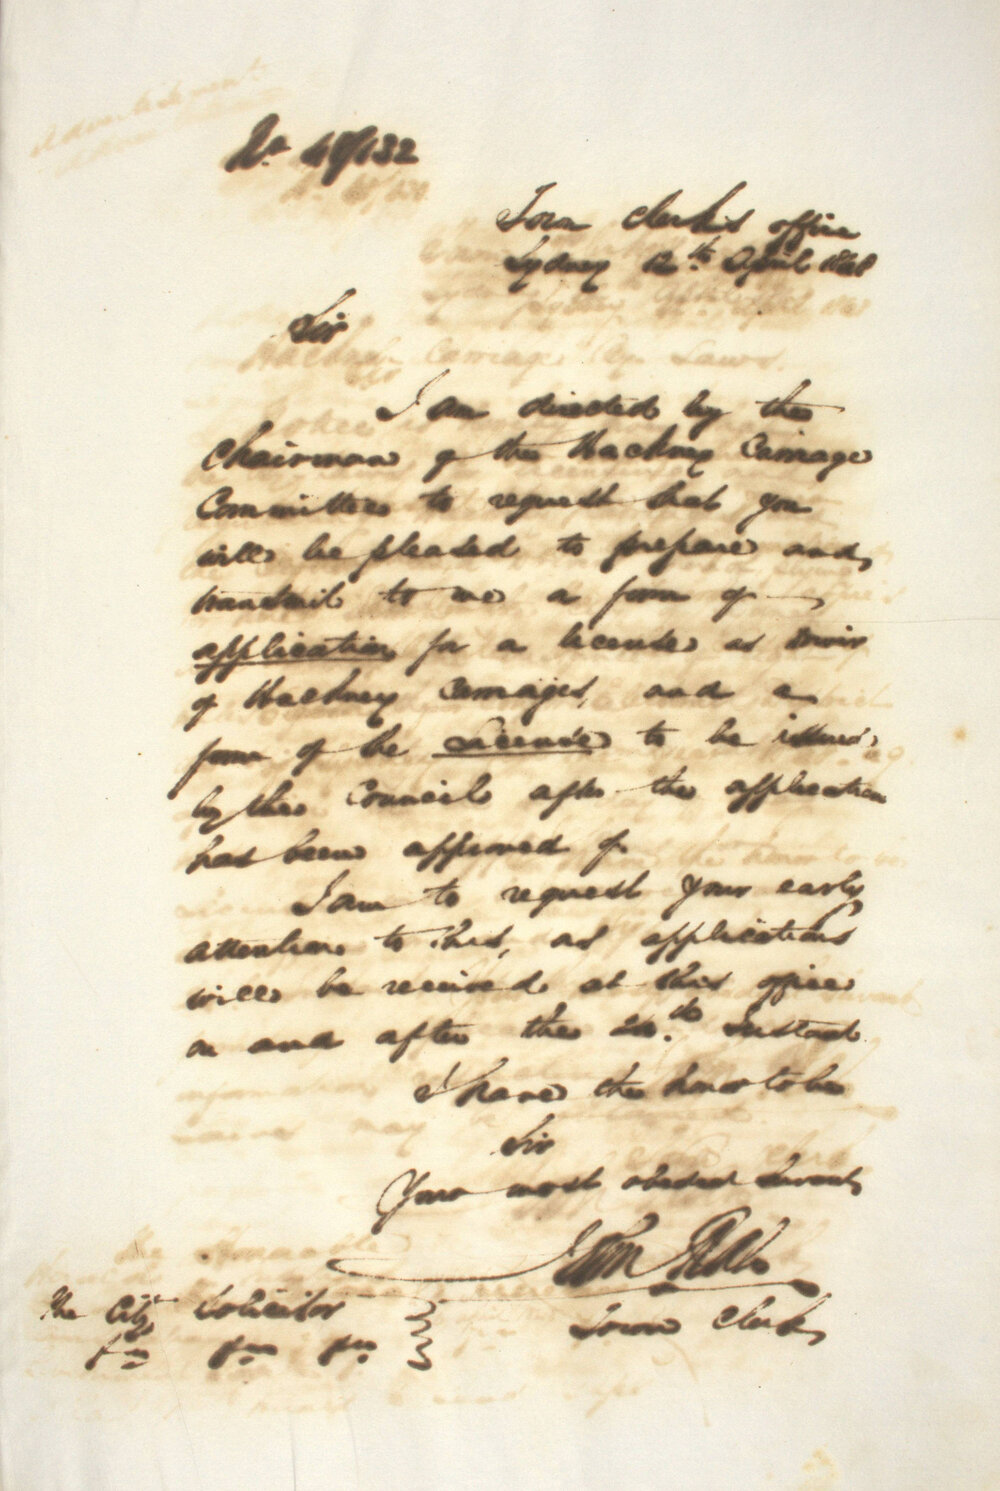 No 48/132
Town Clerk's office
Sydney 12th April 1848
Sir
I am directed by the
Chairman of the Hackney Carriage
Committee to request that you
will be pleased to prepare and
transmit to me a form of
application for a license as
of Hackney Carriages, and a
form of the License to be issued
by the Council after the application
has been approved of.
I am to request your early
attention to this, as applications
will be received at this office
on and after the 24th Instant
I have the honor to be
Sir
Your most obedient Servant
John
Town Clerk
The City Solicitor